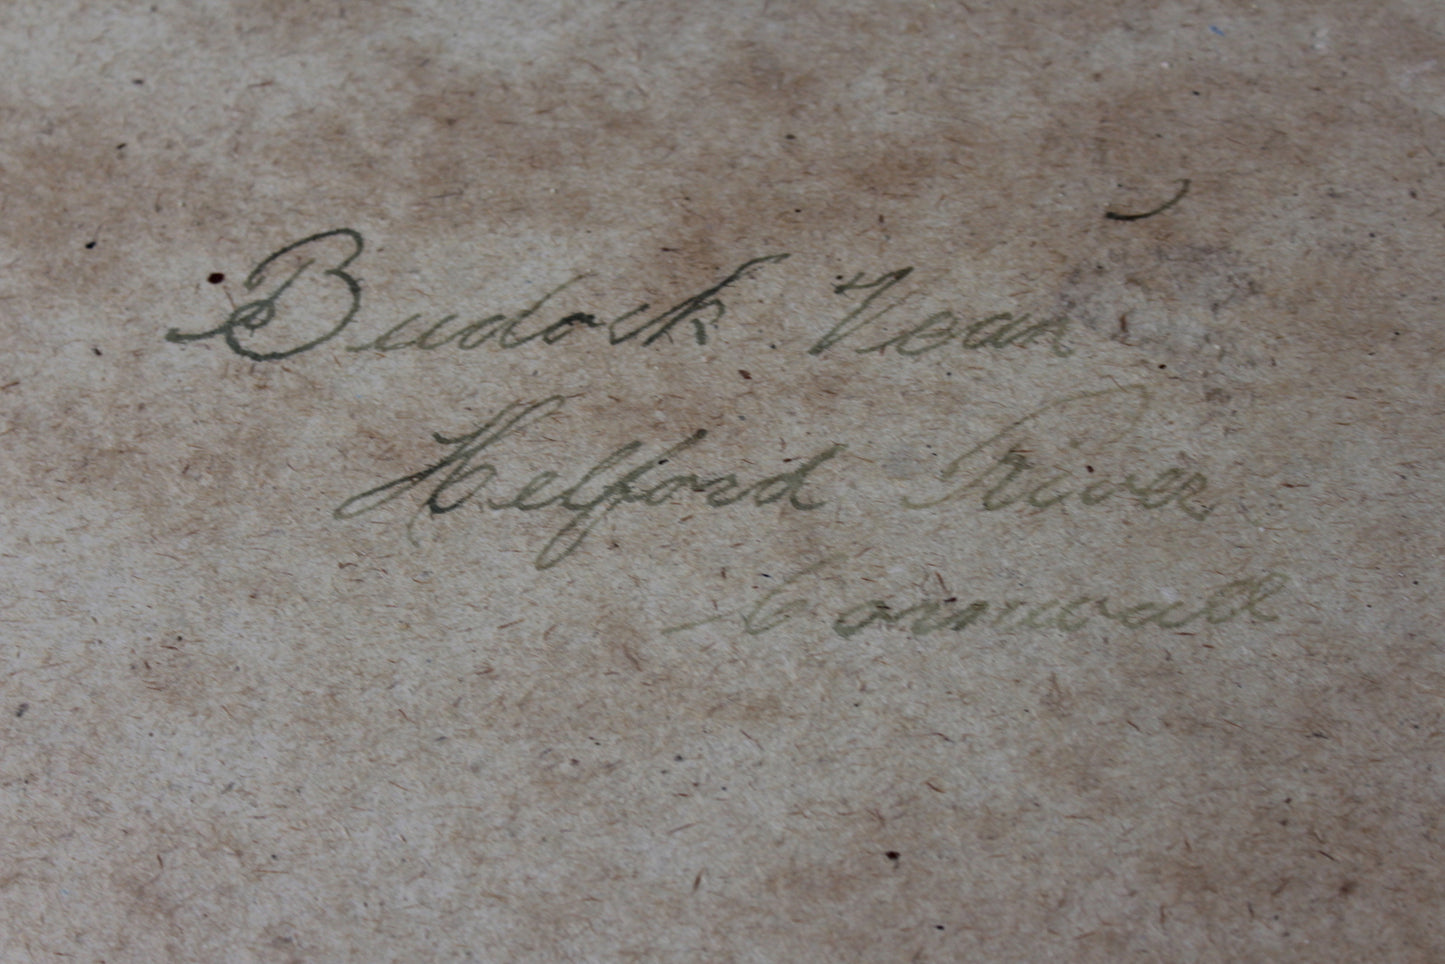 Budock Vean
Helford River
Cornwall